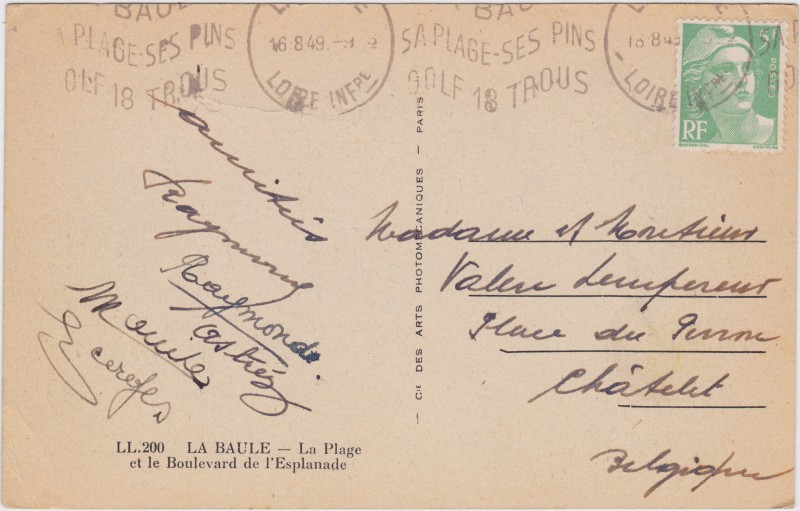 BAULE
SA PLAGE-SES PINS
GOLF 18 TROUS
16·8·49
LOIRE INFRE
BAU
SA PLAGE-SES PINS
GOLF 18 TROUS
16 8·49
LOIRE INFRE
SA
5F
POSTES
RF
amitiés
Raymond
Raymonde
Maude
Madame et Monsieur
Valere Lempereur
Place du Perron
Châtelet
Belgique
CIE DES ARTS PHOTOMÉCANIQUES - PARIS
LL.200 LA BAULE — La Plage
et le Boulevard de l'Esplanade